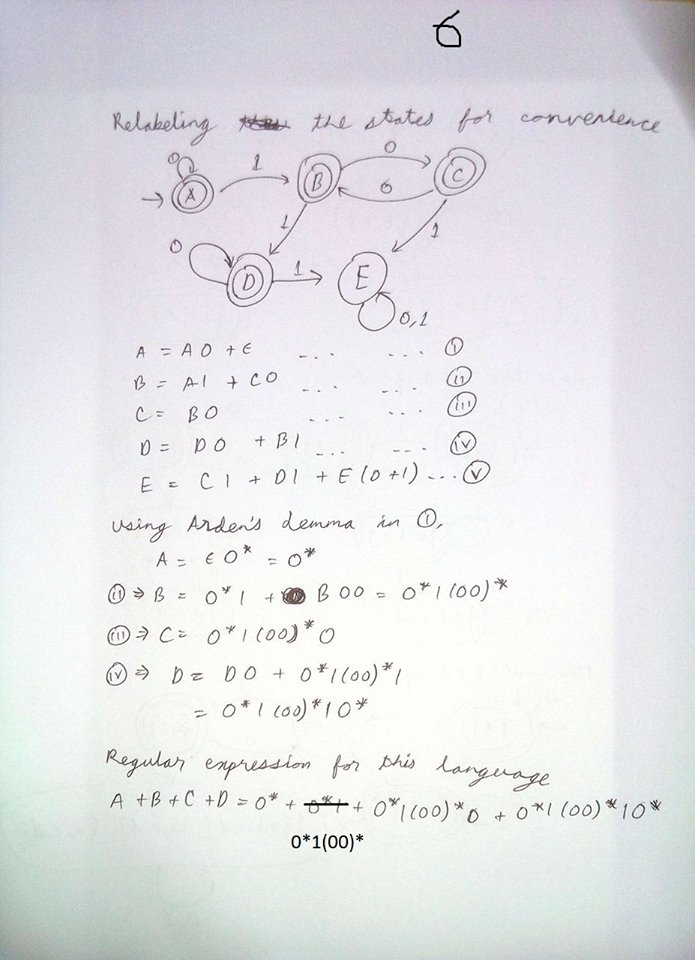 6
Relabeling the states for convenience
0 1 0
A B C
0 1 0 1
D 1 E
0,1
A = A0 + ε ... ... (i)
B = A1 + C0 ... ... (ii)
C = B0 ... ... (iii)
D = D0 + B1 ... ... (iv)
E = C1 + D1 + E(0+1) ... (v)
Using Arden's Lemma in (i),
A = ε0* = 0*
(ii) ⇒ B = 0*1 + B00 = 0*1(00)*
(iii) ⇒ C = 0*1(00)*0
(iv) ⇒ D = D0 + 0*1(00)*1
= 0*1(00)*10*
Regular expression for this language
A+B+C+D = 0* + 0*1 + 0*1(00)*0 + 0*1(00)*10*
0*1(00)*